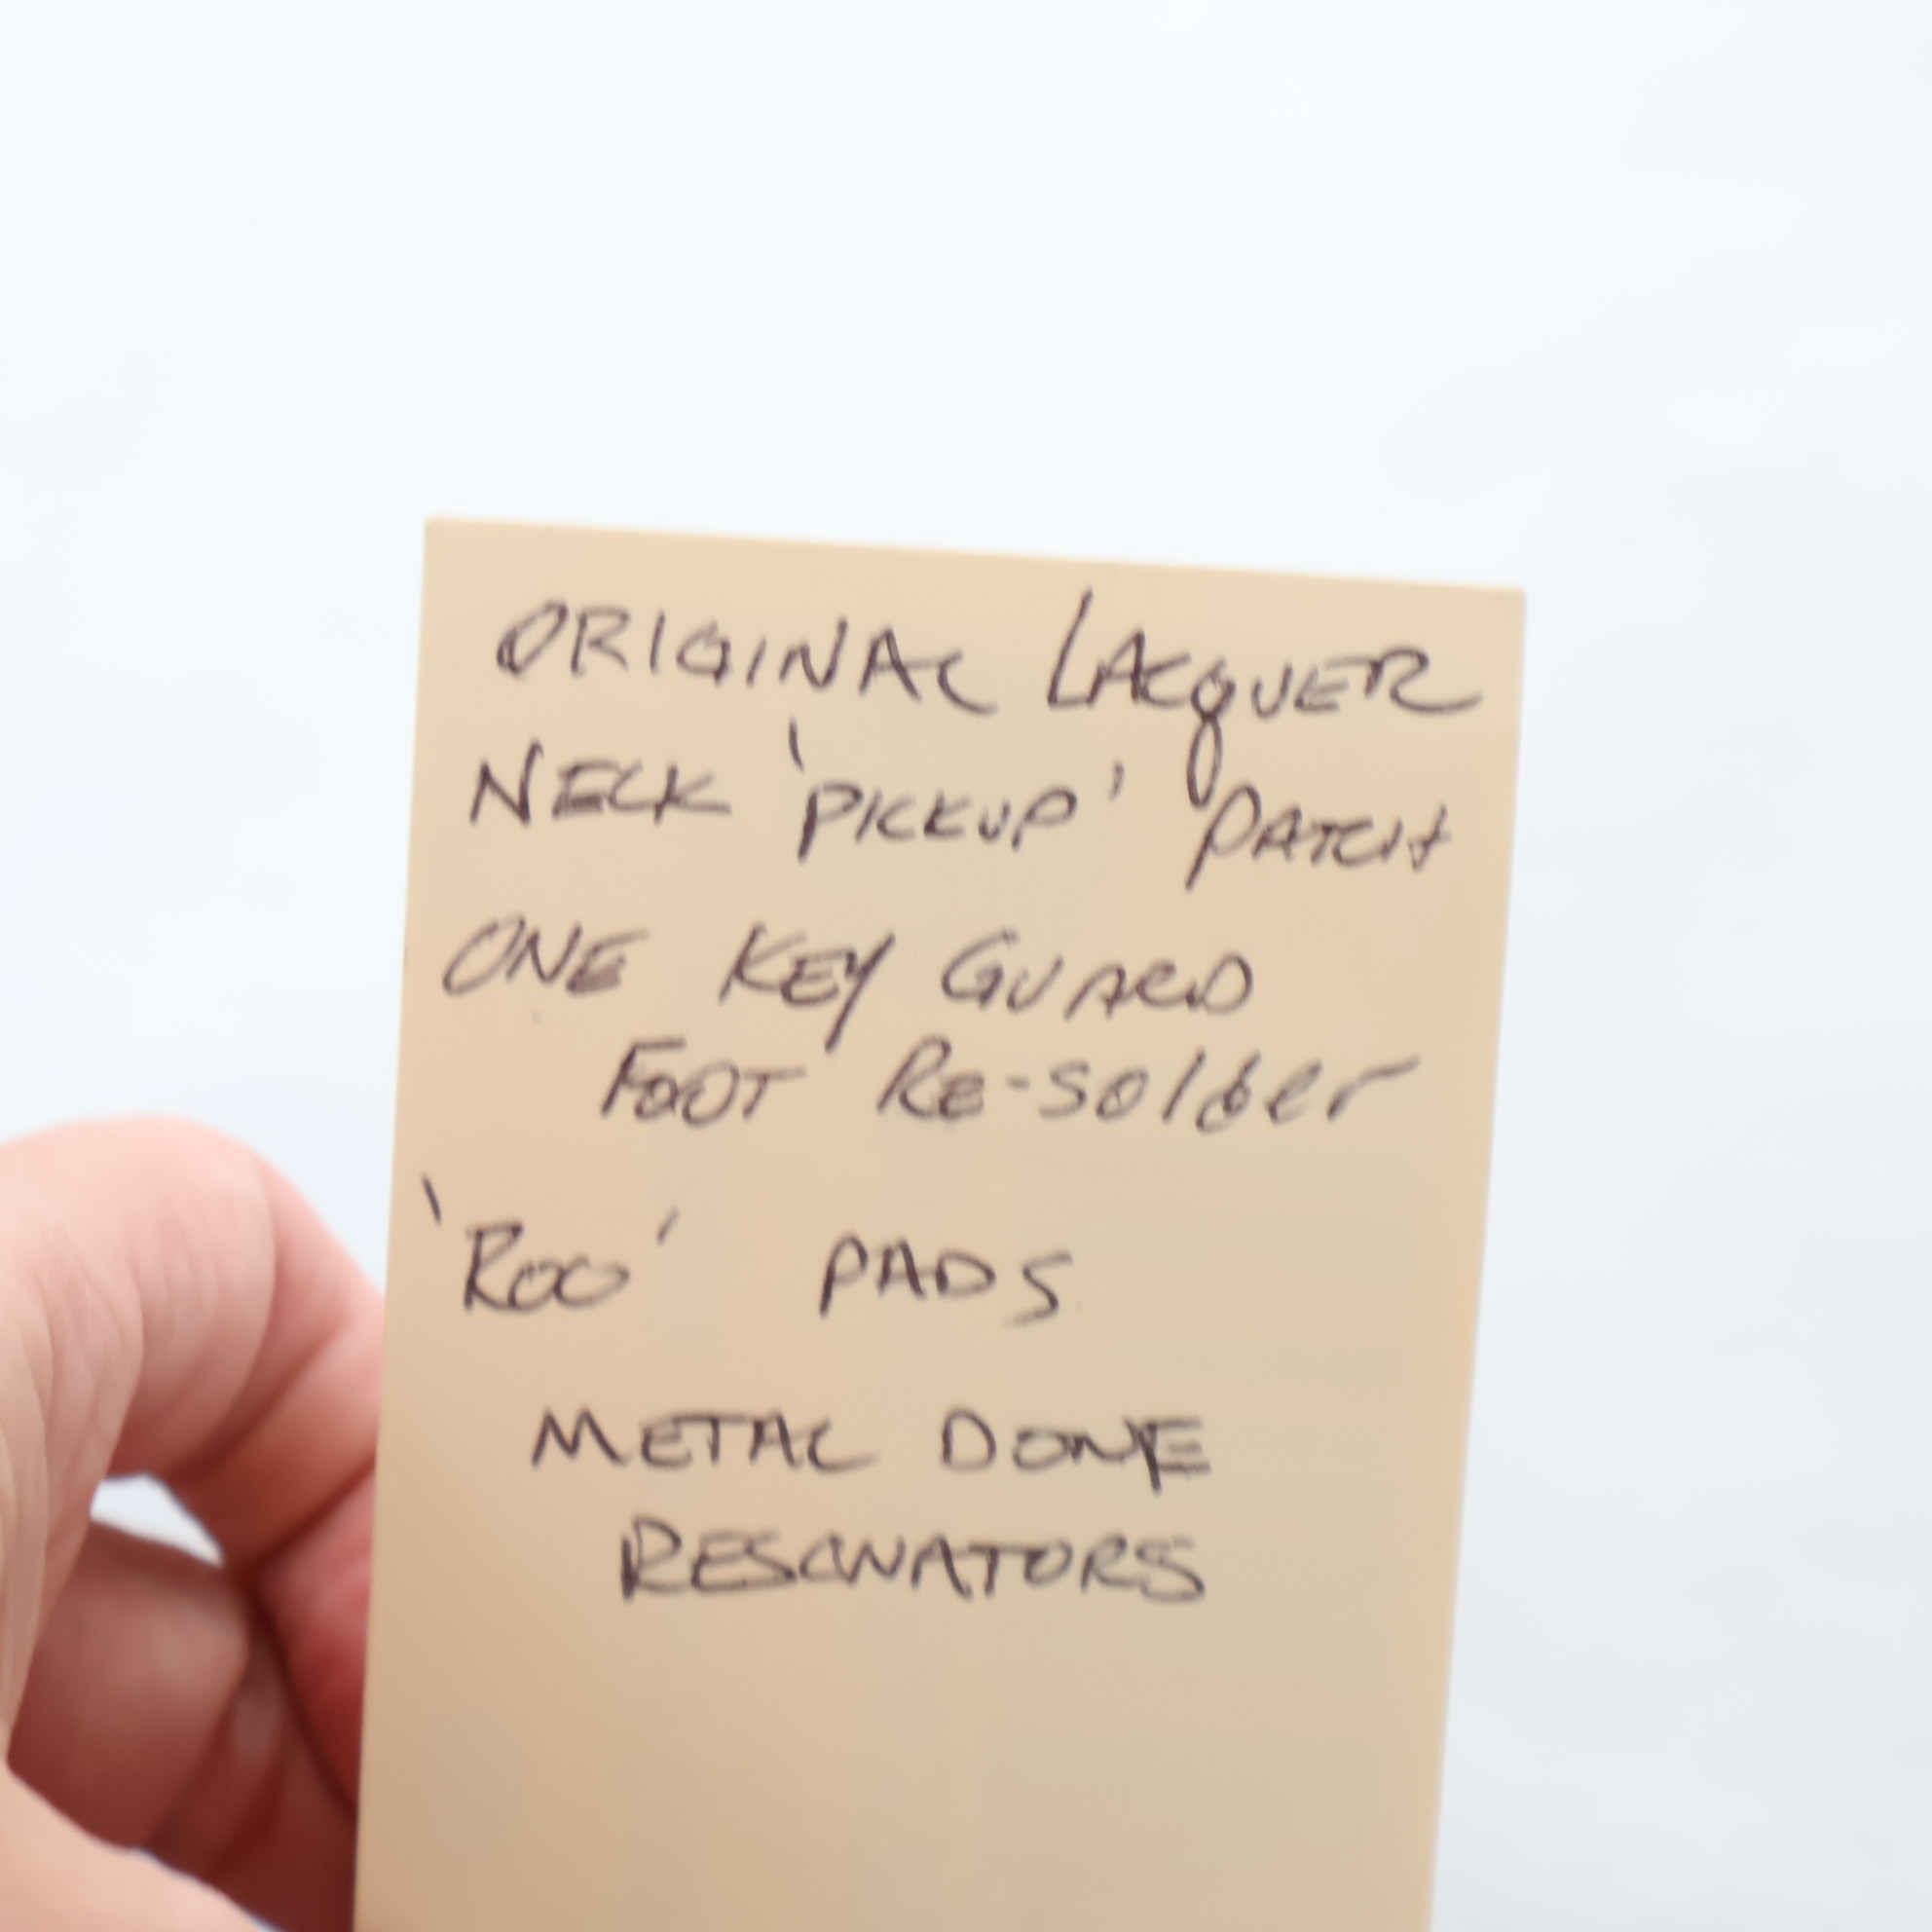 ORIGINAL LACQUER
NECK 'PICKUP' PATCH
ONE KEY GUARD
FOOT Re-solder
'ROO' PADS
METAL DONE
RESONATORS